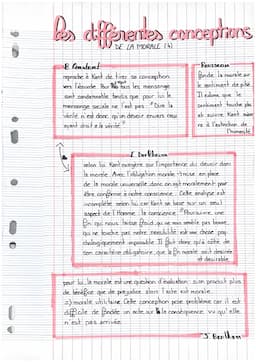 Les différentes conceptions
DE LA MORALE (4)
B. Constant
reproche à Kant de tirer sa conception
vers l'absurde. Pour lui tous les mensonges
sont condamnable tandis que pour lui le
mensonge sociale ne l'est pas. "Dire la
vérité n'est donc qu'un devoir envers ceux
ayant droit à la vérité"
Rousseau
fonde la morale sur
le sentiment de pitié
Il estime que le
sentiment touche plus
et suivre Kant mène
à l'extinction de
l'humanité
E. Durkheim
selon lui Kant exagère sur l'importance du devoir dans
la morale. Avec l'obligation morale on
de la morale universelle donc on agit moralement pour
être conforme à notre conscience. Cette analyse est
incomplète selon lui car Kant se base sur un seul
aspect de l'Homme : la conscience. "Poursuivre une
fin qui nous laisse froid, qui ne nous semble pas bonne,
qui ne touche pas notre sensibilité est une chose psy-
chologiquement impossible. Il faut donc qu'à côté de
son caractère obligatoire, que la fin morale soit désirée
et désirable.
pour lui, la morale est une question d'évaluation : s'en produit plus
de bénéfice que de préjudice alors l'acte est morale.
=> morale utilitaire. Cette conception pose problème car il est
difficile de fonder un acte sur la conséquence vu qu'elle
n'est pas arrivée.
J. Bentham